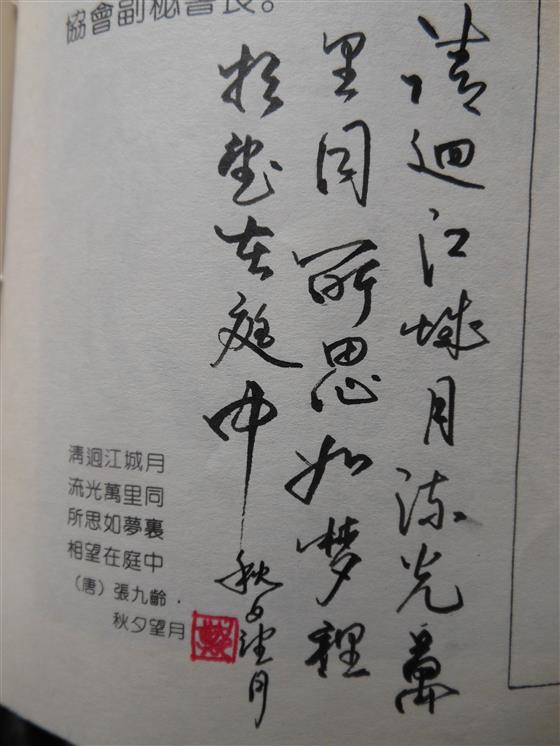 協會副秘書長。
清迴江城月流光萬
里同所思如夢裡
相望在庭中
秋夕望月
清迴江城月
流光萬里同
所思如夢裏
相望在庭中
（唐）張九齡．
秋夕望月